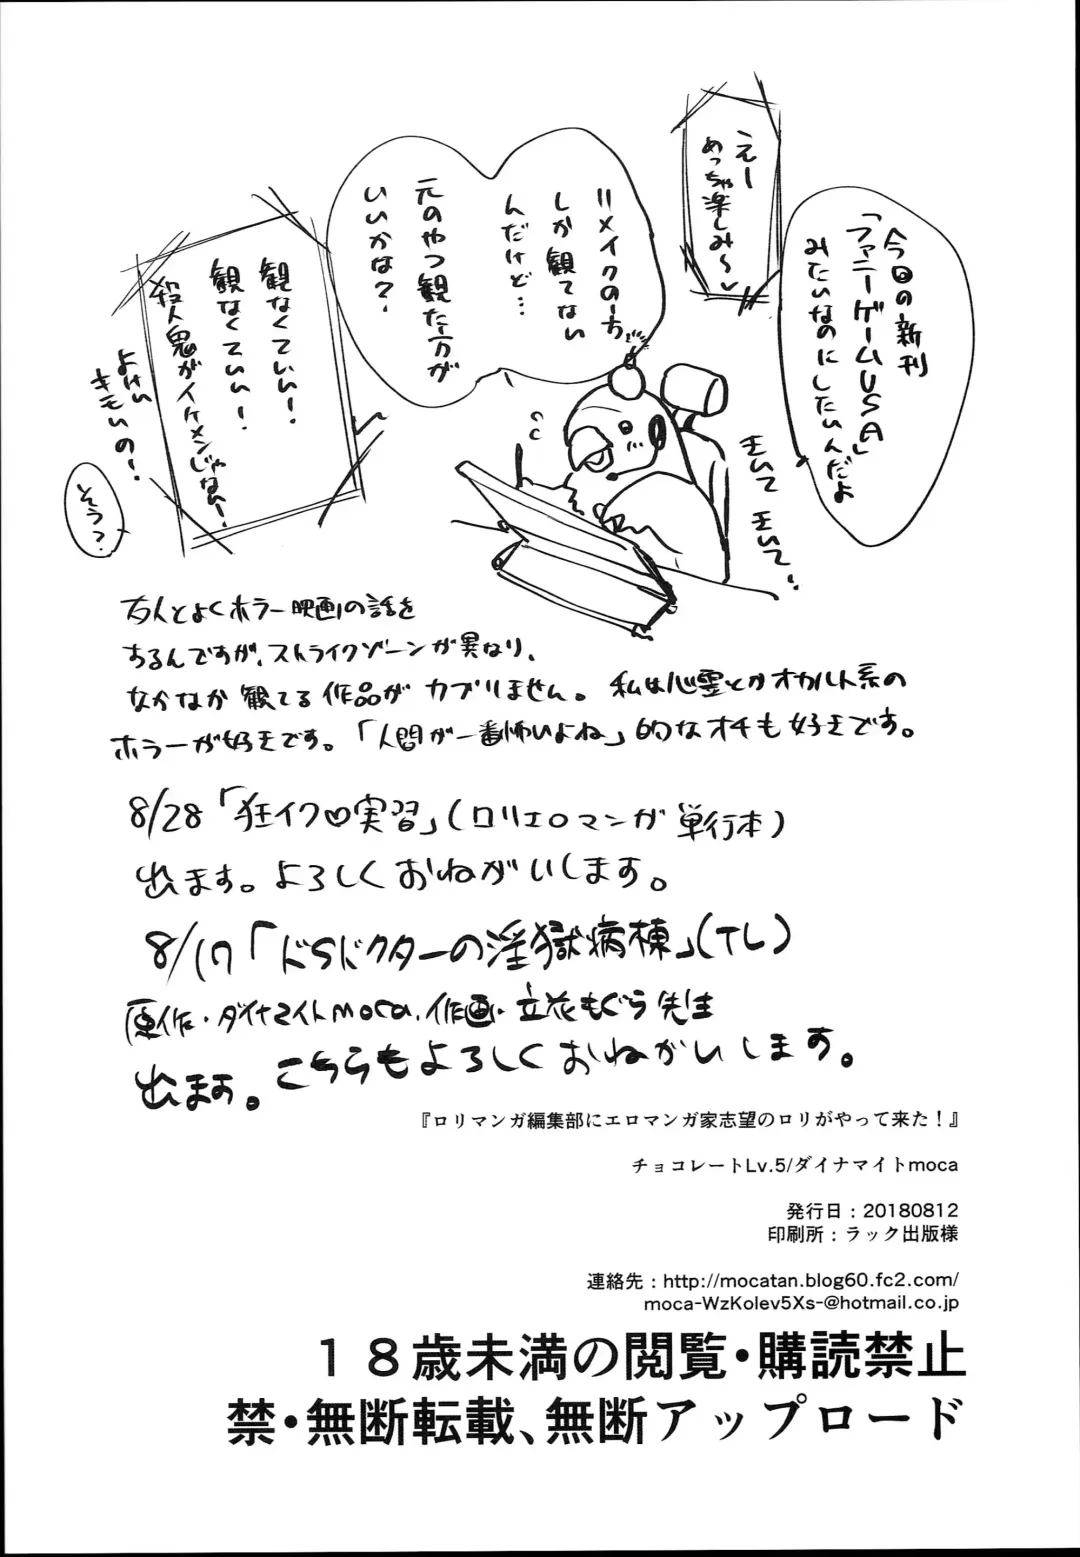 今回の新刊
「ファニーゲームUSA」
みたいなのにしたいんだよ
えー
めっちゃ楽しみ〜♡
リメイクの方
しか観てない
んだけど…
元のやつ観た方が
いいかな?
観なくていい!
観なくていい!
殺人鬼がイケメンじゃない!
よけい
キモいの!
そう?
友人とよくホラー映画の話を
するんですが、ストライクゾーンが異なり、
なかなか観てる作品がカブりません。私は心霊とかオカルト系の
ホラーが好きです。「人間が一番怖いよね」的なオチも好きです。
8/28「狂イク♡実習」(ロリエロマンガ単行本)
出ます。よろしくおねがいします。
8/17「ドSドクターの淫獄病棟」(TL)
原作・ダイナマイトmoca、作画・立花もぐら先生
出ます。こちらもよろしくおねがいします。
『ロリマンガ編集部にエロマンガ家志望のロリがやって来た!』
チョコレートLv.5/ダイナマイトmoca
発行日：20180812
印刷所：ラック出版様
連絡先：http://mocatan.blog60.fc2.com/
moca-WzKolev5Xs-@hotmail.co.jp
18歳未満の閲覧・購読禁止
禁・無断転載、無断アップロード